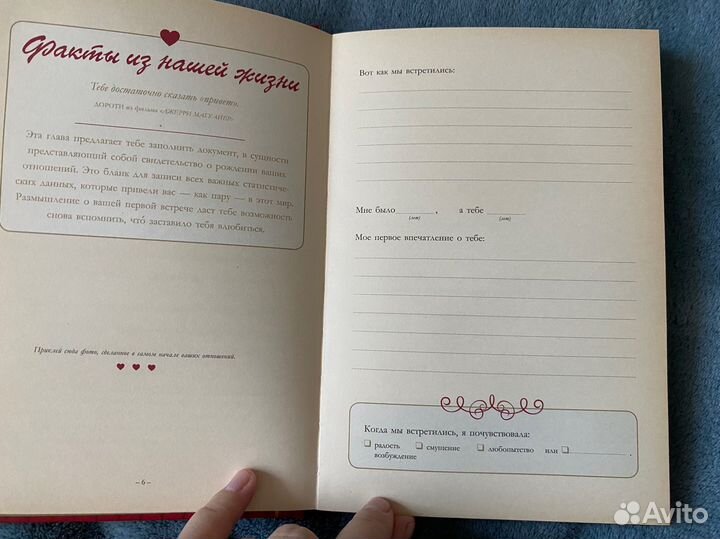 Факты из нашей жизни
Тебе достаточно сказать «привет».
ДОРОТИ из фильма «ДЖЕРРИ МАГУАЙЕР»
Эта глава предлагает тебе заполнить документ, в сущности
представляющий собой свидетельство о рождении ваших
отношений. Это бланк для записи всех важных статистиче-
ских данных, которые привели вас — как пару — в этот мир.
Размышление о вашей первой встрече даст тебе возможность
снова вспомнить, что́ заставило тебя влюбиться.
Приклей сюда фото, сделанное в самом начале ваших отношений.
– 6 –
Вот как мы встретились:
Мне было , а тебе
(лет) (лет)
Мое первое впечатление о тебе:
Когда мы встретились, я почувствовала:
радость смущение любопытство или
возбуждение
Avito